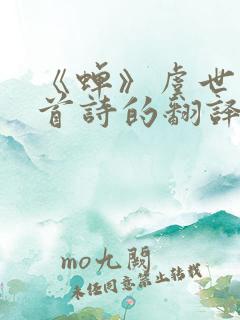 《蝉》虞世
首詩的翻譯
mo九閱
未经同意禁止转载